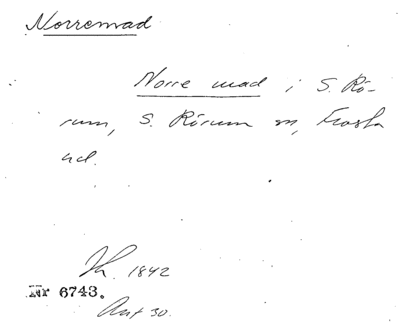 Norremad
Norre mad i S. Rö-
rum, S. Rörum sn, Frosta
hd.
1842
Nr 6743.
Ant 30.